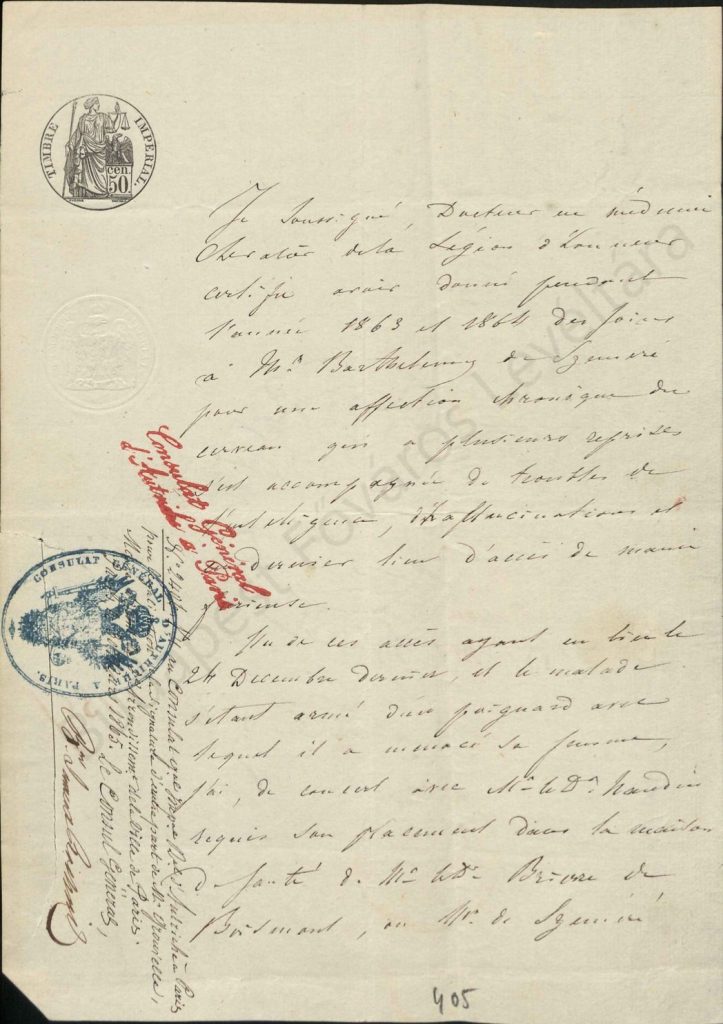 TIMBRE IMPERIAL.
50 cen.
Je soussigné, Docteur en médecine
Chevalier de la Légion d'Honneur
certifie avoir donné pendant
l'année 1863 et 1864 des soins
à Mr. Barthelemy de Szeméré
pour une affection chronique du
cerveau qui a plusieurs reprises
s'est accompagnée de troubles de
l'intelligence, d'hallucinations et
dernier lieu d'accès de manie
furieuse.
Un de ces accès ayant eu lieu le
24 Decembre dernier, et le malade
s'étant armé d'un poignard avec
lequel il a menacé sa femme,
j'ai, de concert avec Mr. le Dr.
requis son placement dans la maison
de santé de Mr. le Dr. Brierre de
Boismont, où Mr. de Szeméré
Consulat Général
d'Autriche à Paris
CONSULAT GÉNÉRAL D'AUTRICHE A PARIS.
au Consulat gén. d'Autriche à Paris
la signature d'autre part de Mr.
de la Ville de Paris.
1865. Le Consul Général,
405
Budapest Főváros Levéltára